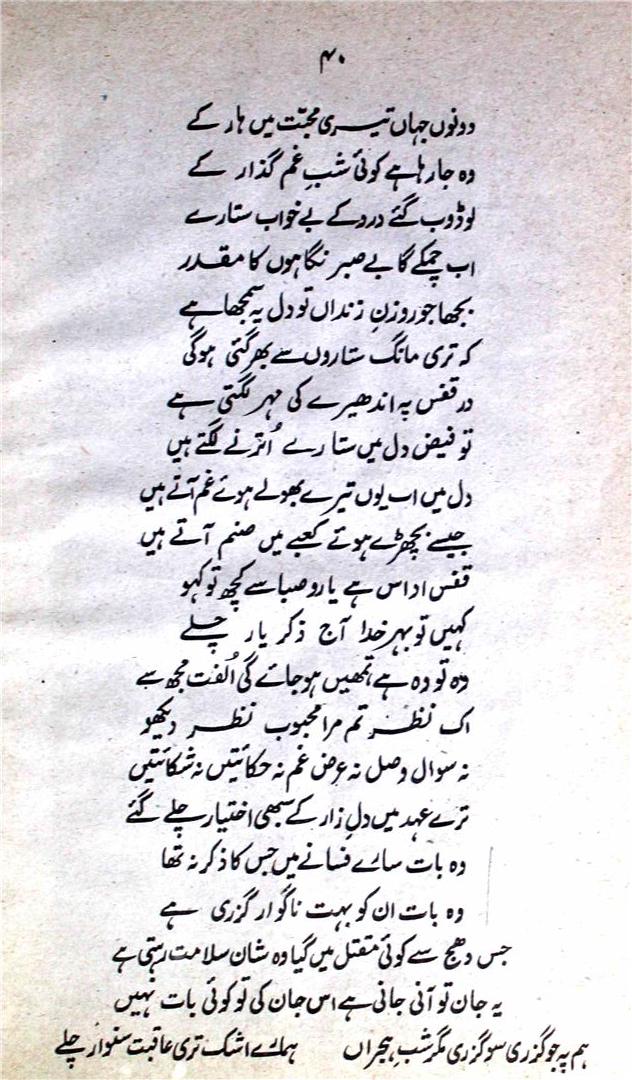 ۴۰
دونوں جہاں تیری محبّت میں ہار کے
وہ جا رہا ہے کوئی شبِ غم گذار کے
لو ڈوب گئے درد کے بے خواب ستارے
اب چمکے گا بے صبر نگاہوں کا مقدر
بجھا جو روزنِ زنداں تو دل یہ سمجھا ہے
کہ تری مانگ ستاروں سے بھر گئی ہوگی
در قفس پہ اندھیرے کی مہر لگتی ہے
تو فیض دل میں ستارے اُترنے لگتے ہیں
دل میں اب یوں تیرے بھولے ہوئے غم آتے ہیں
جیسے بچھڑے ہوئے کعبے میں صنم آتے ہیں
قفس اداس ہے یارو صبا سے کچھ تو کہو
کہیں تو بہر خدا آج ذکر یار چلے
وہ تو وہ ہے تمھیں ہو جائے گی اُلفت مجھ سے
اک نظر تم مرا محبوب نظر دیکھو
نہ سوال وصل نہ عرض غم نہ حکائتیں نہ شکائتیں
ترے عہد میں دلِ زار کے سبھی اختیار چلے گئے
وہ بات سارے فسانے میں جس کا ذکر نہ تھا
وہ بات ان کو بہت ناگوار گزری ہے
جس دھج سے کوئی مقتل میں گیا وہ شان سلامت رہتی ہے
یہ جان تو آنی جانی ہے اس جان کی تو کوئی بات نہیں
ہم پہ جو گزری سو گزری مگر شبِ ہجراں ہمارے اشک تری عاقبت سنوار چلے